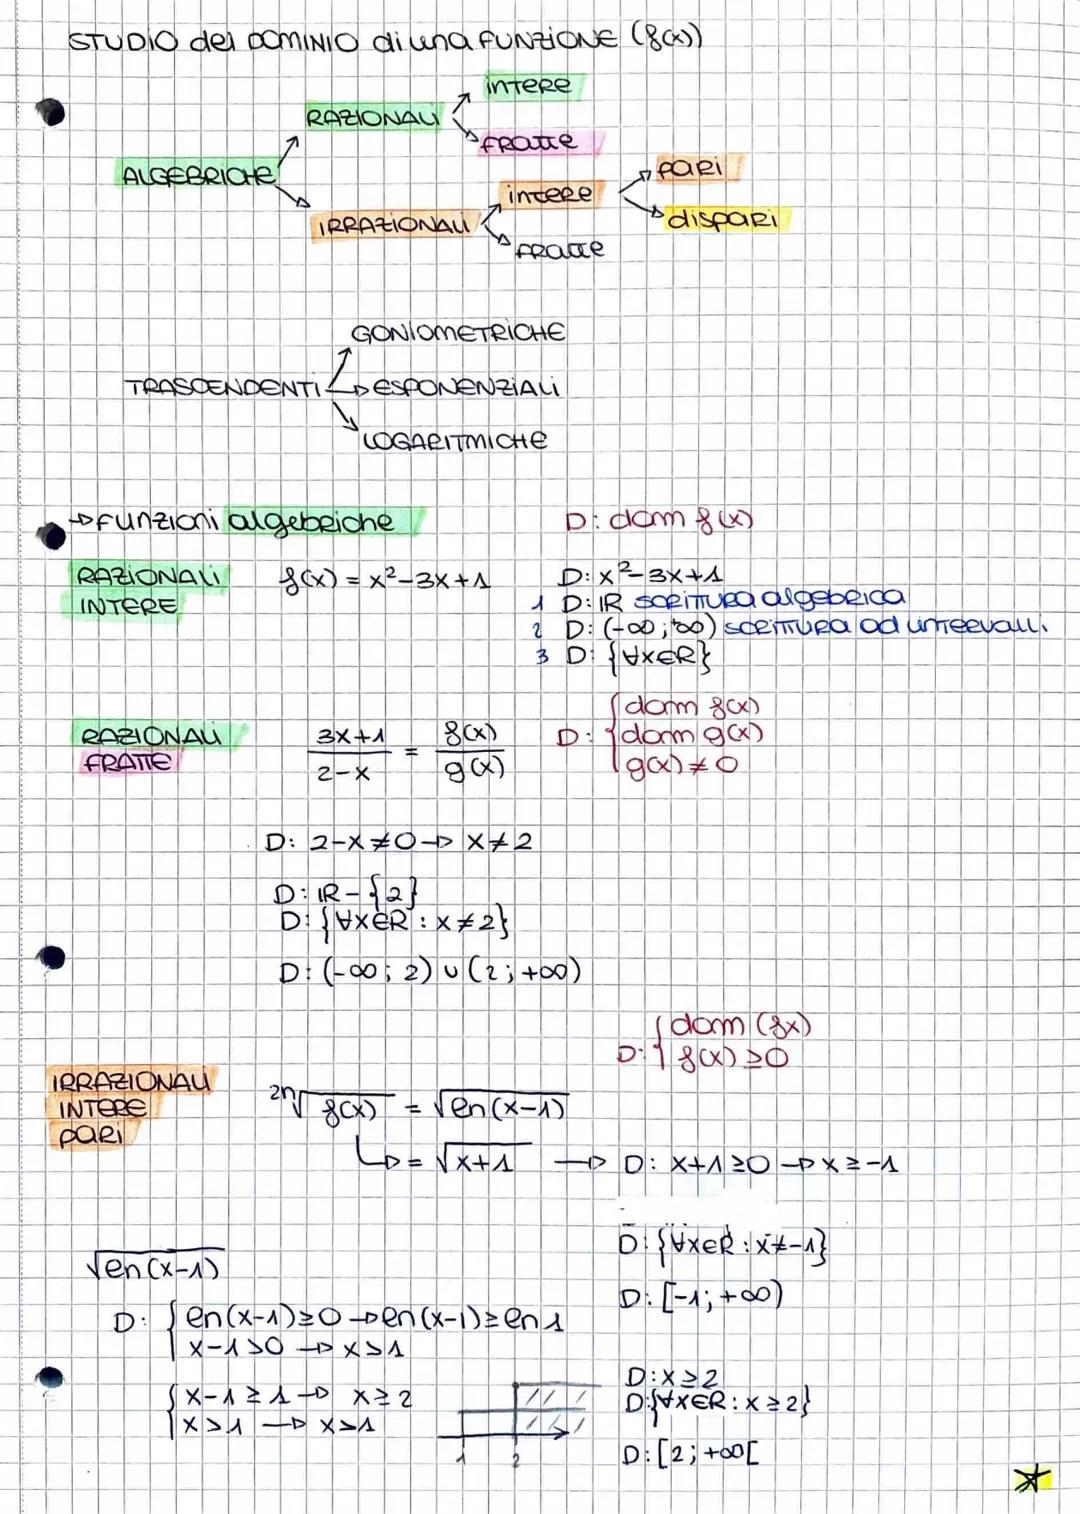 STUDIO del DOMINIO di una FUNZIONE (f(x))
ALGEBRICHE
RAZIONALI
intere
fratte
IRRAZIONALI
intere
pari
dispari
fratte
TRASCENDENTI
GONIOMETRICHE
ESPONENZIALI
LOGARITMICHE
→ funzioni algebriche
D: dom f(x)
RAZIONALI INTERE
f(x) = x²-3x+1
D: x²-3x+1
1 D: ℝ scrittura algebrica
2 D: (-∞; ∞) scrittura ad intervalli.
3 D: {∀x∈R}
RAZIONALI FRATTE
3x+1 / 2-x = f(x) / g(x)
D: { dom f(x)
dom g(x)
g(x) ≠ 0
D: 2-x≠0 → x≠2
D: ℝ - {2}
D: {∀x∈R : x≠2}
D: (-∞; 2) ∪ (2; +∞)
D: { dom (fx)
f(x) ≥0
IRRAZIONALI
INTERE
pari
²ⁿ√f(x) = √en(x-1)
↳ = √x+1 → D: x+1≥0 → x≥-1
D: {∀x∈R : x≠-1}
D: [-1; +∞)
√en(x-1)
D: { en(x-1)≥0 → en(x-1)≥en1
x-1>0 → x>1
{ x-1≥1 → x≥2
x>1 → x>1
1 2
D: x≥2
D:{∀x∈R : x≥2}
D: [2; +∞[